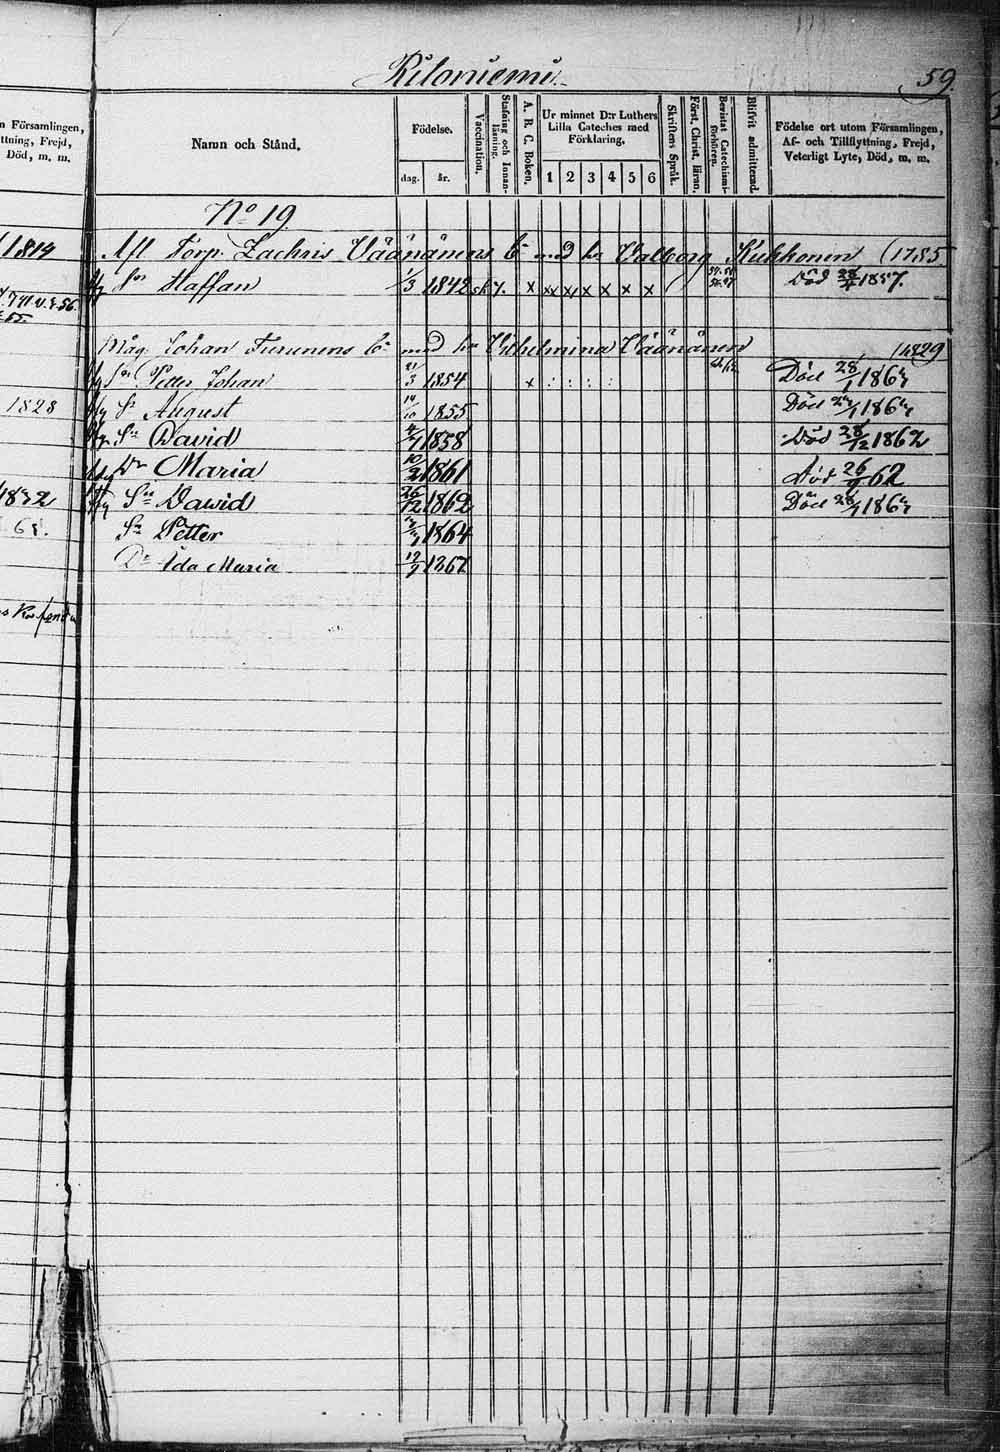 Ritoniemi
59.
n Församlingen,
ttning, Frejd,
Död, m. m.
Namn och Stånd.
Födelse.
dag. år.
Vaccination.
Stafning och Innanläsning.
A. B. C. Boken.
Ur minnet D:r Luthers
Lilla Cateches med
Förklaring.
1 2 3 4 5 6
Skriftens Språk.
Förkl. Christ. läran.
Bevistat Catechismiförhören.
Blifvit admitterad.
Födelse ort utom Församlingen,
Af- och Tillflyttning, Frejd,
Veterligt Lyte, Död, m. m.
No 19
1814
Afl Torp. Zachris Väänänens med Valborg Kukkonen (1785
Sn Staffan 1/3 1842 x xx x x x x x Död 1857.
Måg Johan Turunens med Vilhelmina Väänänen 1829
Sn Petter Johan 21/3 1854 x : : : : Död 28/1
1828
Sn August 14/10 1855 Död
Sn David 4/7 1858 Död 28/12 1862
Dr Maria 10/2 1861 Död 26/9 62
1832
Sn David 26/12 1862 Död
Sn Petter 1864
Dr Ida Maria 12/9 1867